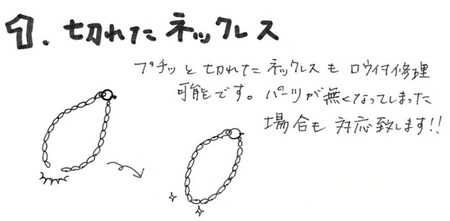 1. 切れたネックレス
プチッと切れたネックレスもロウ付修理
可能です。パーツが無くなってしまった
場合も対応致します!!